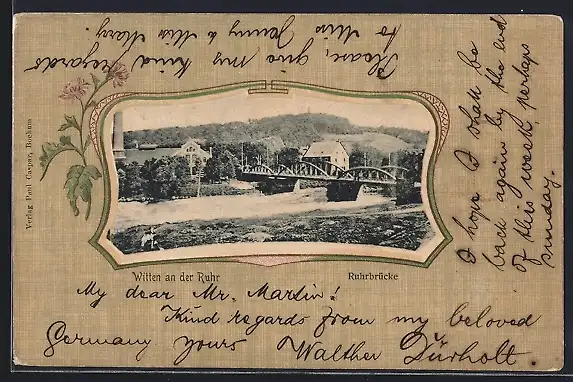 Please, give my kind regards
to Miss Jenny & Miss Mary.
I hope I shall be
back again by the end
of this week, perhaps
sunday.
Verlag Paul Casper, Bochum
Witten an der Ruhr
Ruhrbrücke
My dear Mr. Martin!
Kind regards from my beloved
Germany yours Walther Dürholt.